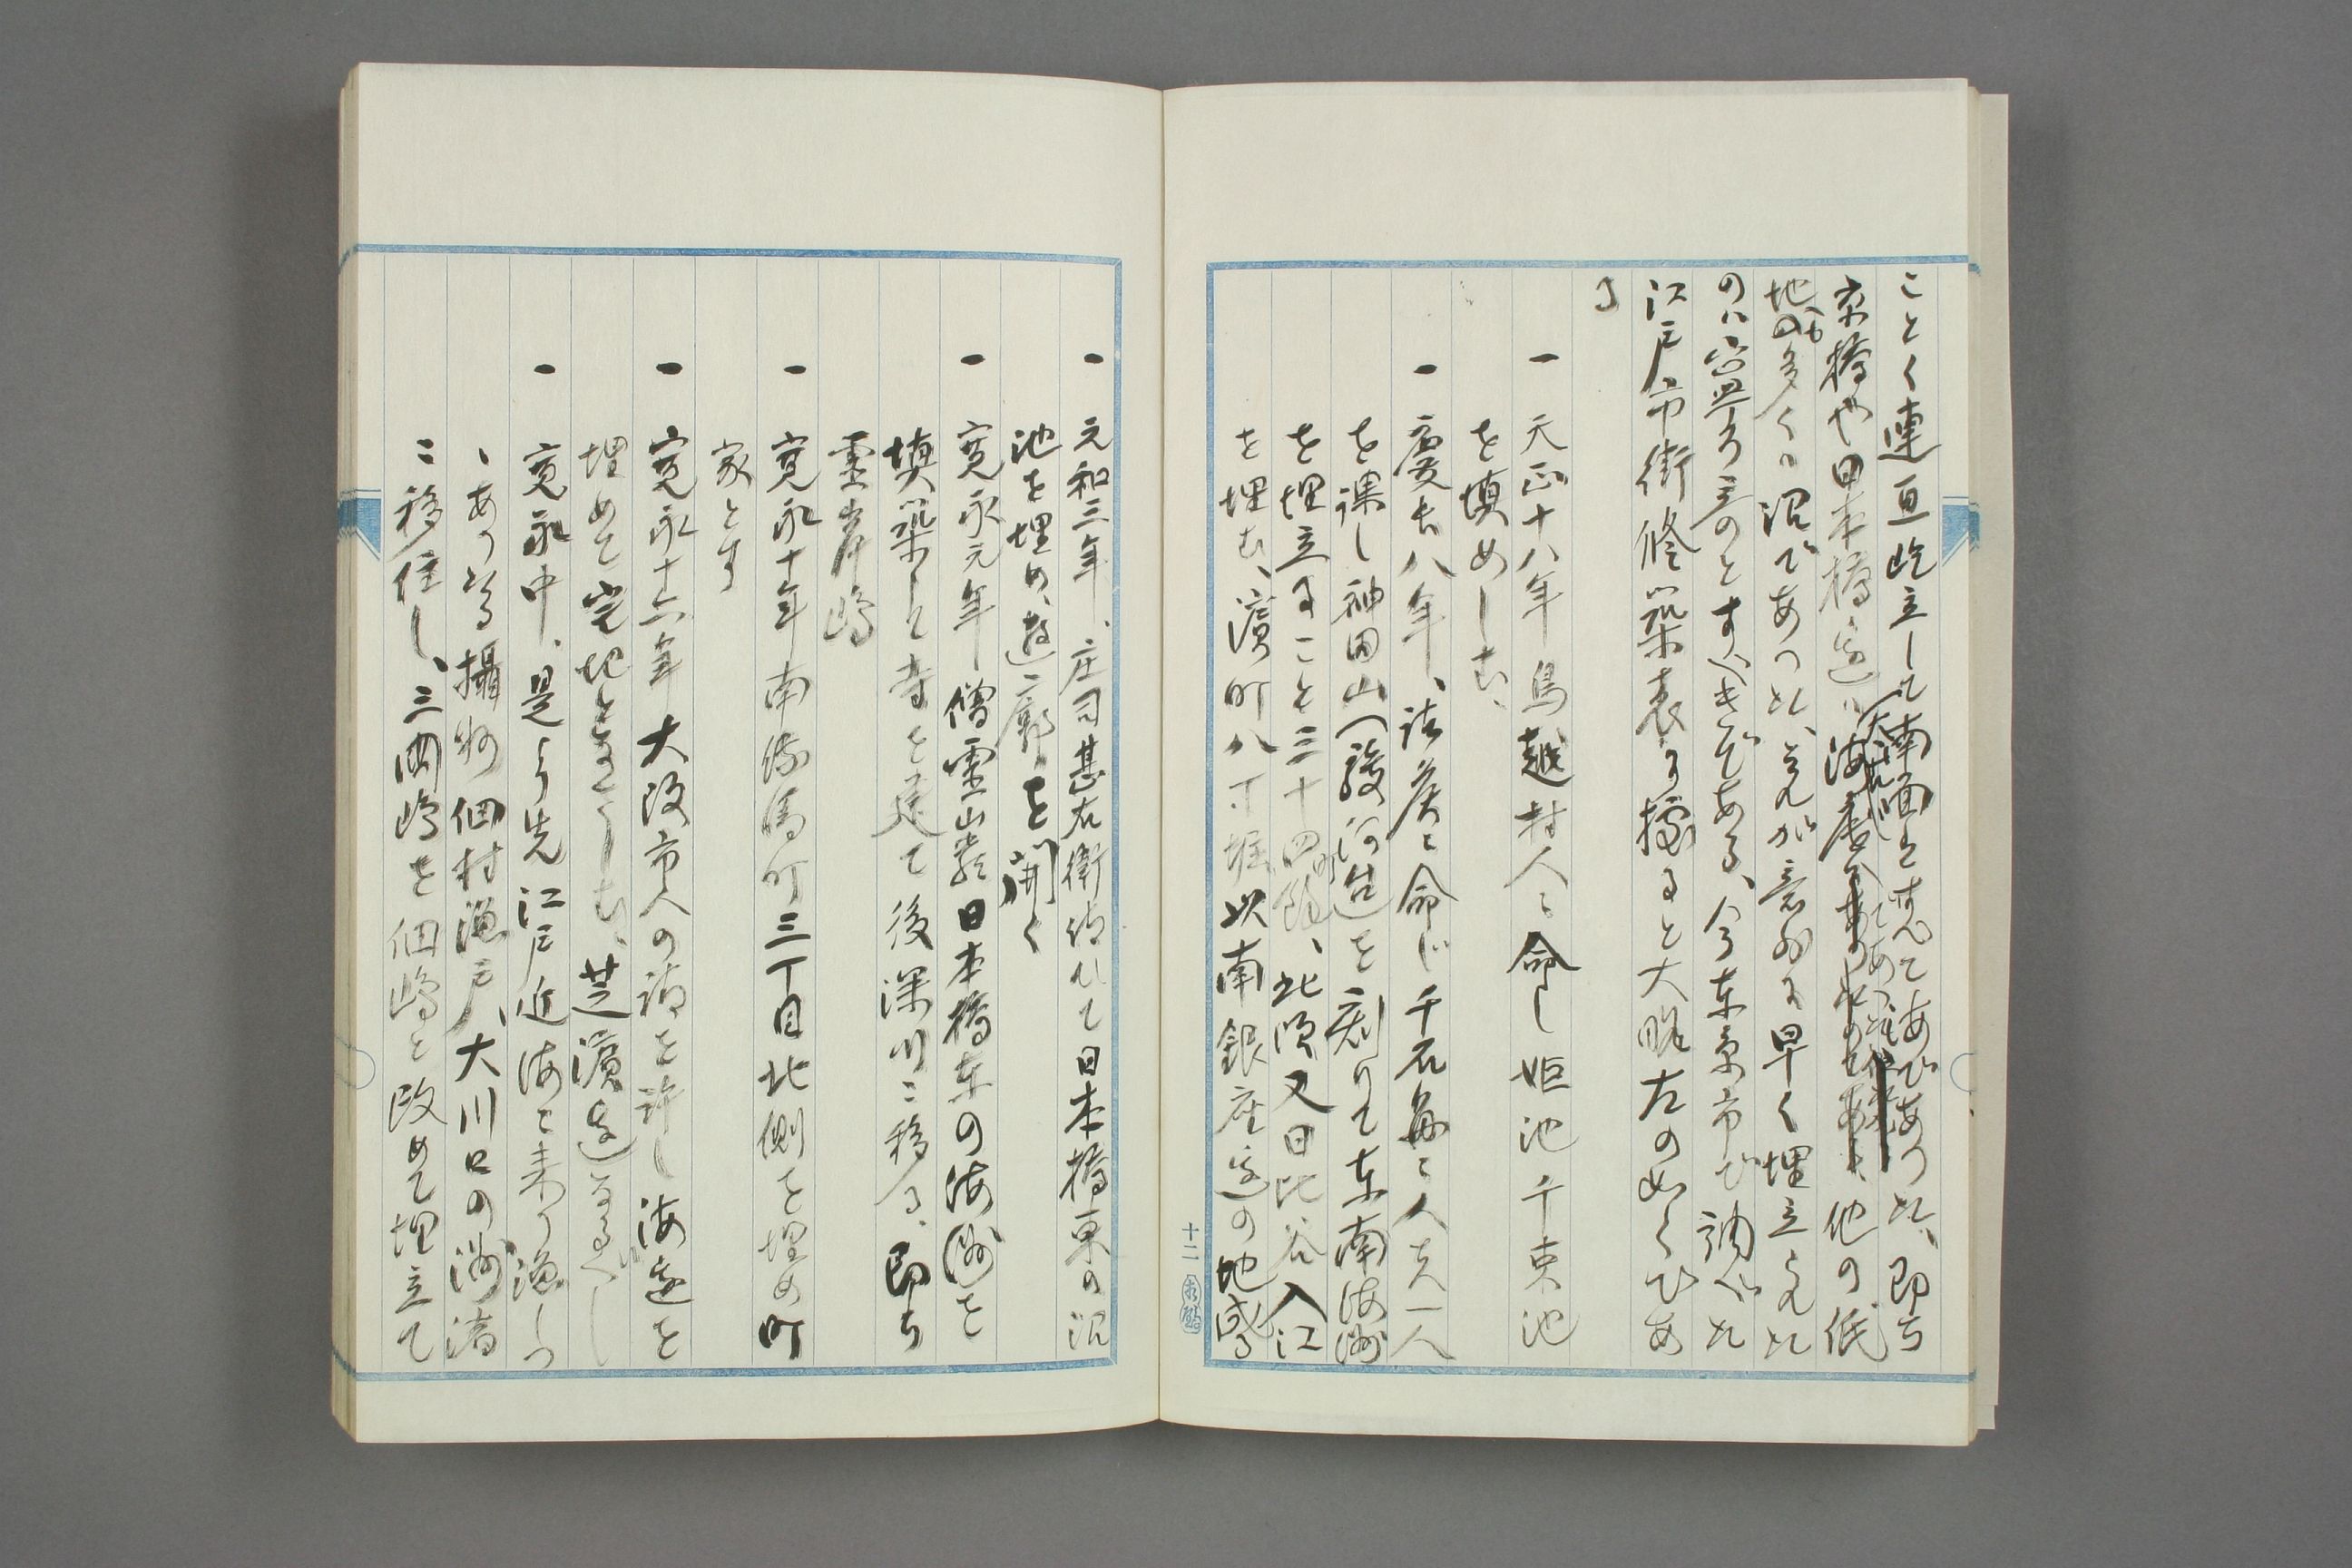 ことく連亘屹立して南面は凡て海であつた、即ち
京橋や日本橋辺は海であつた、他の低
地も多くは沼であつた、それが意外に早く埋立られた
のは寧ろ奇のとすべきである、今東京市で調べた
江戸市街修築表に拠ると大略左の如くであ
る
一 天正十八年鳥越村人に命し姫池千束池
を填めしむ、
一 慶長八年、諸侯に命じ千石毎に人夫一人
を課し神田山(駿河台辺)を削りて東南海洲
を埋立すること三十四町余、北隅又日比谷入江
を埋む、濱町八丁堀以南銀座辺の地成る
十二
一 元和三年、庄司甚右衛門請ひて日本橋東の沼
池を埋め、遊廓を開く
一 寛永元年僧霊山岩日本橋東の海洲を
填築して寺を建て後深川に移る、即ち
霊岸嶋
一 寛永十年南傳馬町三丁目北側を埋め町
家とす
一 寛永十六年大阪市人の請を許し海辺を
埋めて宅地となさしむ、芝濱辺なるべし
一 寛永中、是より先江戸近海に来り漁しつ
ゝありたる攝州佃村漁戸、大川口の洲渚
に移住し、三四嶋を佃嶋と改めて埋立て